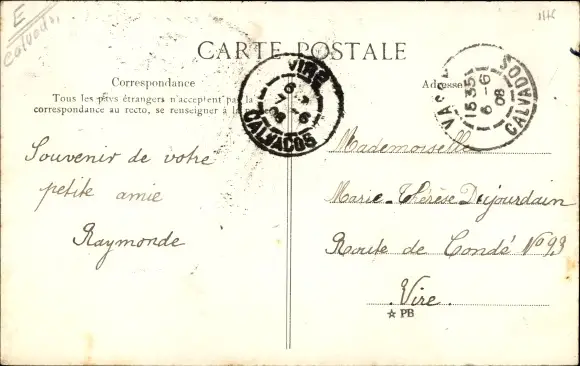 E
Calvados
CARTE POSTALE
Correspondance
Tous les pays étrangers n'acceptent pas la
correspondance au recto, se renseigner à la
Adresse
VIRE
CALVADOS
15 35
6 - 6
08
CALVADOS
Souvenir de votre
petite amie
Raymonde
Mademoiselle
Marie-Thérèse Dujourdain
Route de Condé No 93
Vire.
☆ PB